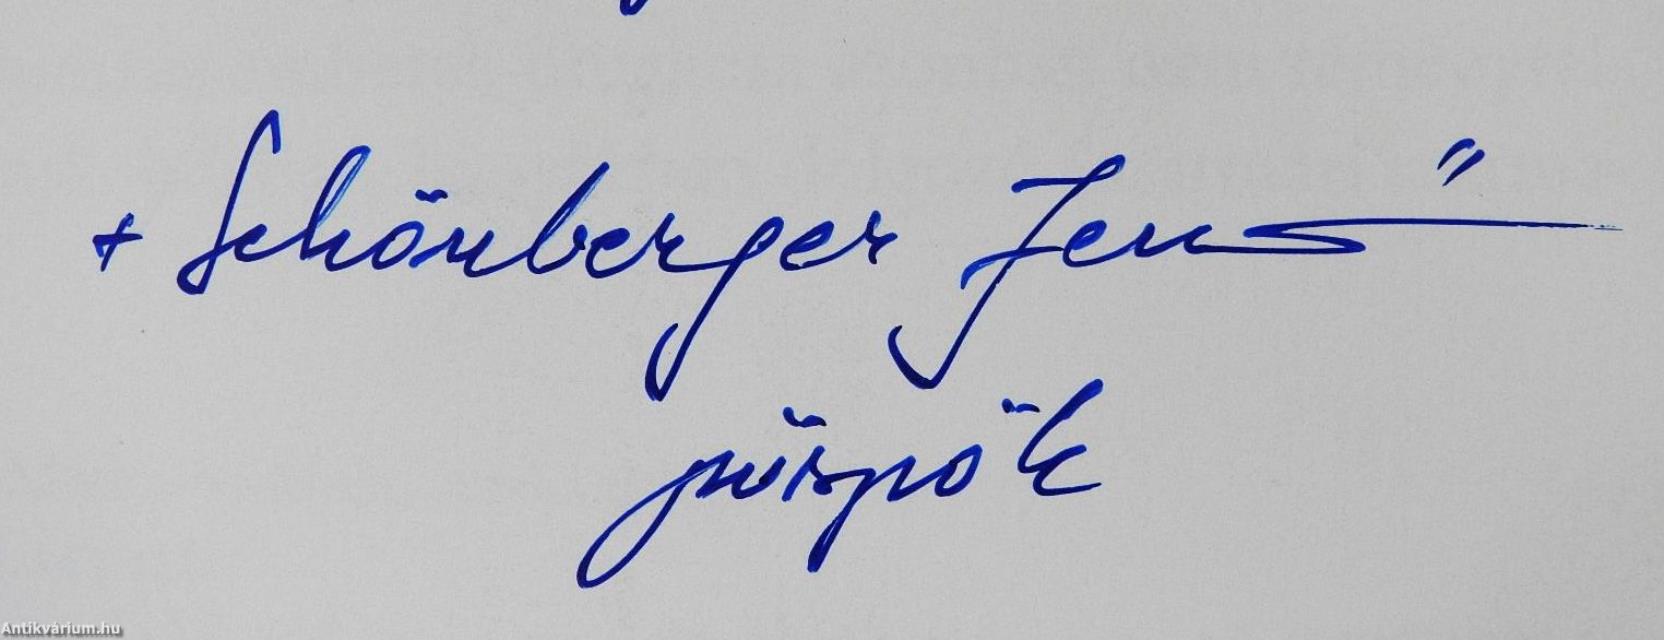 + Schönberger Jenő
püspök
Antikvárium.hu